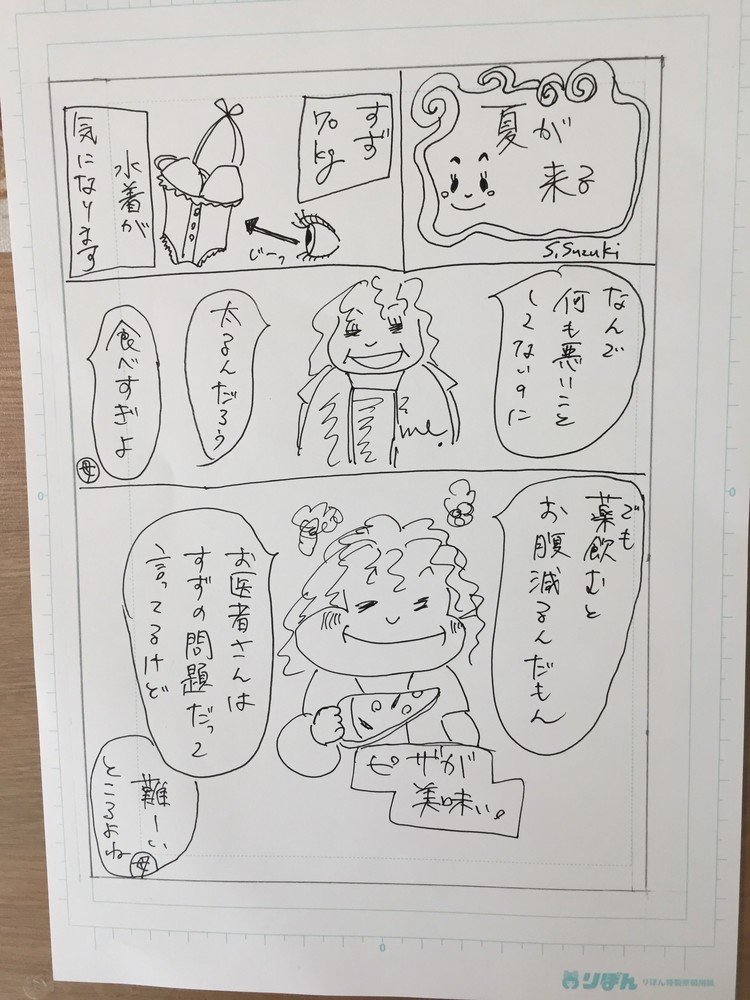 夏が
来る
S.Suzuki
すず
70kg
じーっ
水着が
気になります
なんで
何も悪いこと
してないのに
me.
太るんだろう
食べすぎよ
母
でも
薬飲むと
お腹減るんだもん
お医者さんは
すずの問題だって
言ってるけど
ピザが
美味い。
難しい
ところよね
母
0
0
0
りぼん
りぼん特製原稿用紙